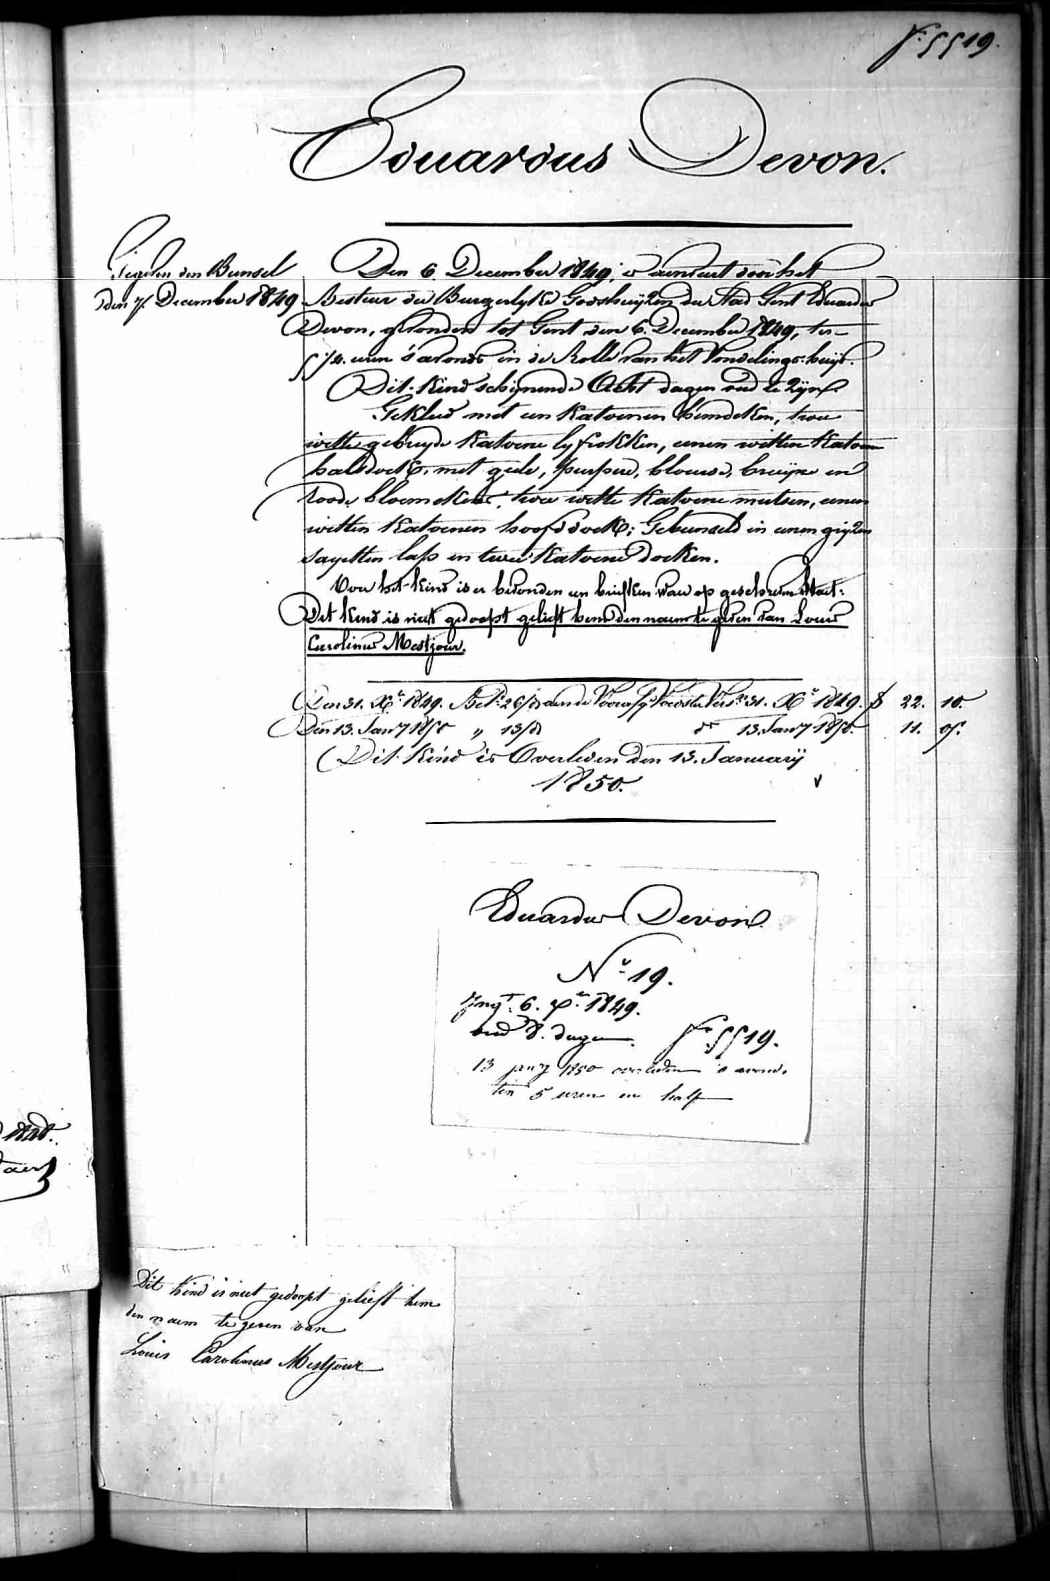 fo. 5519.
Eduardus Devon.
den Bunsel
den 7. December 1849
Den 6 December 1849, is aenveirt door het
Bestuur der Burgerlyke Godshuyzen der Stad Gent Eduardus
Devon, gevonden tot Gent den 6. December 1849, ten
5 1/4. uren 's avonds in de Rolle van het Vondelings-huys.
Dit Kind schynende Acht dagen oud te zyn
Gekleed met een Katoenen hemdeken, twee
witte gebruyde Katoene lyfrokken, eenen witten Katoen
halsdoek, met geele, purpere, blauwe, bruyne en
roode bloemekens, twee witte Katoene mutsen, eenen
witten Katoenen hoofddoek; Gebunseld in eenen gryzen
sayetten lap en twee Katoene doeken.
Voor het Kind is er bevonden een briefken waer op geschreven staet:
Dit Kind is niet gedoopt gelieft hem den naem te geven van Louis
Carolinus Mestjour.
Den 31. Xr. 1849. 26/d aen de 31. Xr 1849. 22. 10.
Den 13. Jany 1850 " 13/d do 13. Jany 1850. 11. 5.
Dit Kind is Overleden den 13. January
1850.
Eduardus Devon
No. 19.
6. Xr. 1849.
oud 8. dagen. fo. 5519.
13 jany 1850 overleden 's avonds
ten 5 uren en half
Dit kind is niet gedoopt gelieft hem
den naem te geven van
Louis Carolinus Mestjour